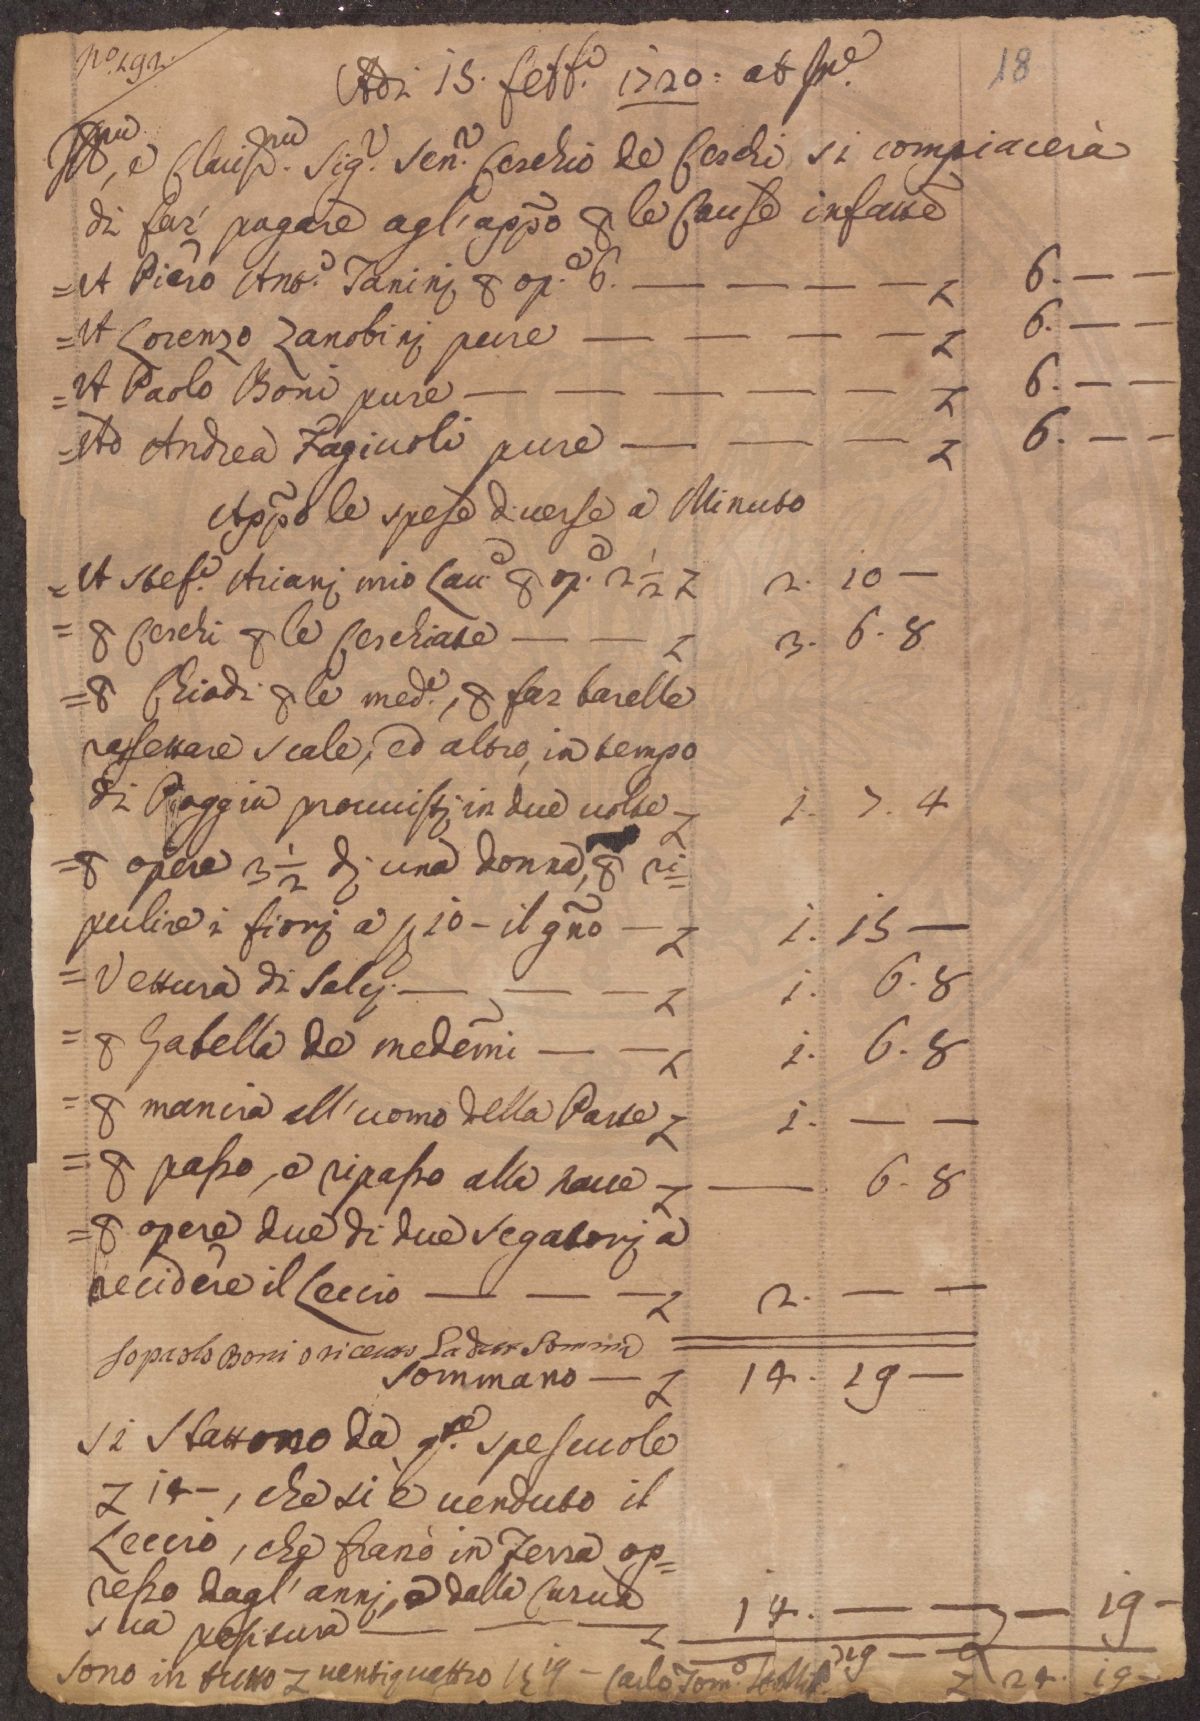 No. 191.
18
Adi 15. Sett.e 1720: ab Inc.e
Ill.mo, e Clariss.mo Sig.r Sen.r Cerchio de Cerchi si compiacerà
di far' pagare agl'appo p le Cause infatte
=A Piero Ant.o Taninj p op.e 6. — — — — £ 6. — —
=A Lorenzo Zanobinj pure — — — — £ 6. — —
=A Paolo Boni pure — — — — — £ 6. — —
=Ad Andrea Fagiuoli pure — — — £ 6. — —
Appo le spese diverse a Minuto
=A Stef.o Arianj mio Lau.e p op.e 2 1/2 £ 2. 10 —
=p Cerchi p le Cerchiate — — £ 3. 6. 8
=p Chiodi p le med.e, p far barelle
rassettare scale, ed altro, in tempo
di Pioggia provvistj in due volte £ 1. 7. 4
=p opere 3 1/2 dj una donna, p ri=
pulire i fiorj a ß 10 – il gno — £ 1. 15 —
=Vettura di Salcj — — — £ 1. 6. 8
=p Gabella de medemi — — £ 1. 6. 8
=p mancia all'uomo della Parte £ 1. — —
=p passo, e ripasso alla Nave £ — 6. 8
=p opere due di due segatorj a
recidere il Leccio — — — £ 2. — —
Io paolo Boni o riceuto La detta Somma
Sommano — £ 14. 19 —
si sbattono da q.te spesuole
£ 14 –, che si è venduto il
Leccio, che franò in Terra op=
presso dagl'annj, e dalla Curva
sua positura — — — £ 14. — — — 19 –
sono in tutto £ ventiquattro ß 19 – Carlo Tom.o £ 24. 19 –